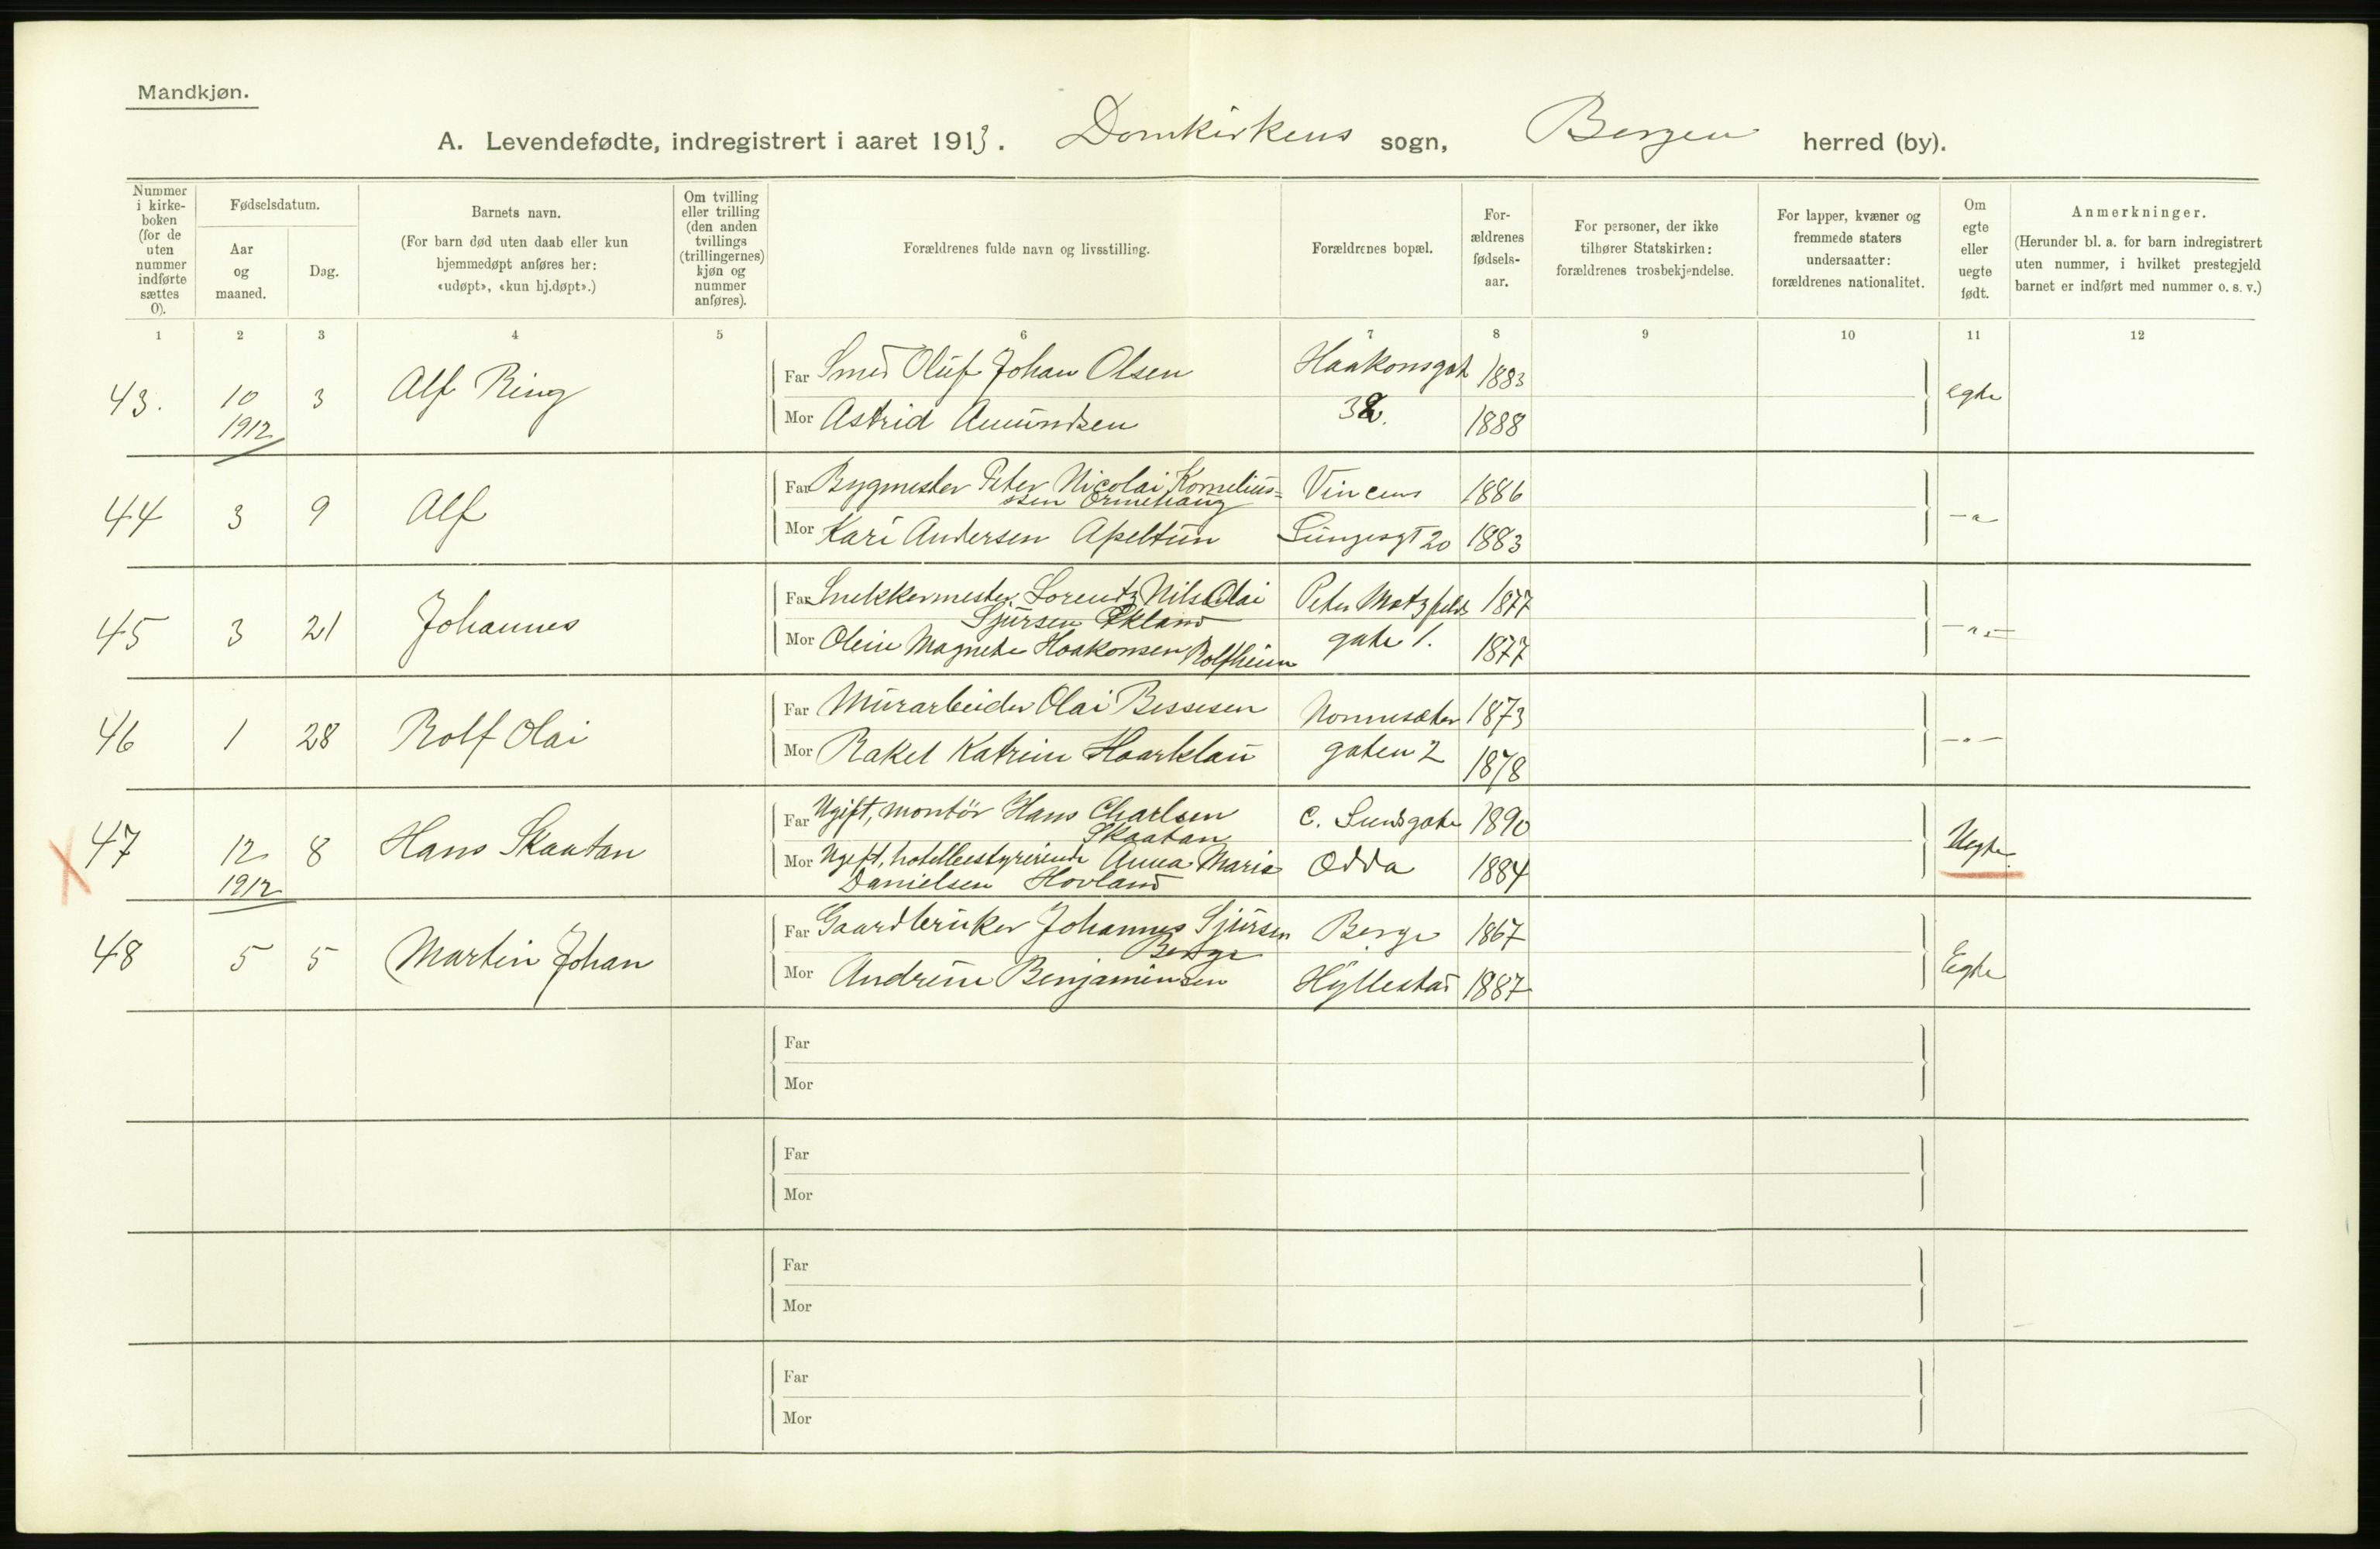 Mandkjøn.
A. Levendefødte, indregistrert i aaret 1913. Domkirkens sogn, Bergen herred (by).
Nummer i kirke- boken (for de uten nummer indførte sættes 0).
Fødselsdatum.
Aar og maaned.
Dag.
Barnets navn.
(For barn død uten daab eller kun hjemmedøpt anføres her: «udøpt», «kun hj.døpt».)
Om tvilling eller trilling (den anden tvillings (trillingernes) kjøn og nummer anføres).
Forældrenes fulde navn og livsstilling.
Forældrenes bopæl.
For- ældrenes fødsels- aar.
For personer, der ikke tilhører Statskirken: forældrenes trosbekjendelse.
For lapper, kvæner og fremmede staters undersaatter: forældrenes nationalitet.
Om egte eller uegte født.
Anmerkninger.
(Herunder bl. a. for barn indregistrert uten nummer, i hvilket prestegjeld barnet er indført med nummer o. s. v.)
1 2 3 4 5 6 7 8 9 10 11 12
43. 10 1912 3 Alf Ring
Far Smed Oluf Johan Olsen Haakonsgat 1883
Mor Astrid Amundsen 32. 1888
egte
44 3 9 Alf
Far Bygmester Peter Nicolai Kornelius= Vincens 1886
ssen Ormehaug
Mor Kari Andersen Apeltun Lungesgt 20 1883
— " —
45 3 21 Johannes
Far Snekkermester Lorentz Nils Olai Peter Motzfelds 1877
Sjursen Økland
Mor Oleie Magnete Haakonsen Rolfheim gate 1. 1877
— " —
46 1 28 Rolf Olai
Far Murarbeider Olai Bessesen Nonnesæter 1873
Mor Rakel Katrine Haarklau gaten 2 1878
— " —
47 12 1912 8 Hans Skaatan
Far Ugift, montör Hans Charlsen C. Sundsgate 1890
Skaatan
Mor Ugift, hotelbestyrerinde Anna Maria Odda 1884
Danielsen Hovland
Uegte
48 5 5 Martin Johan
Far Gaardbruker Johannes Sjursen Berge 1867
Berge
Mor Andrine Benjaminsen Hyllestad 1887
Egte
Far
Mor
Far
Mor
Far
Mor
Far
Mor